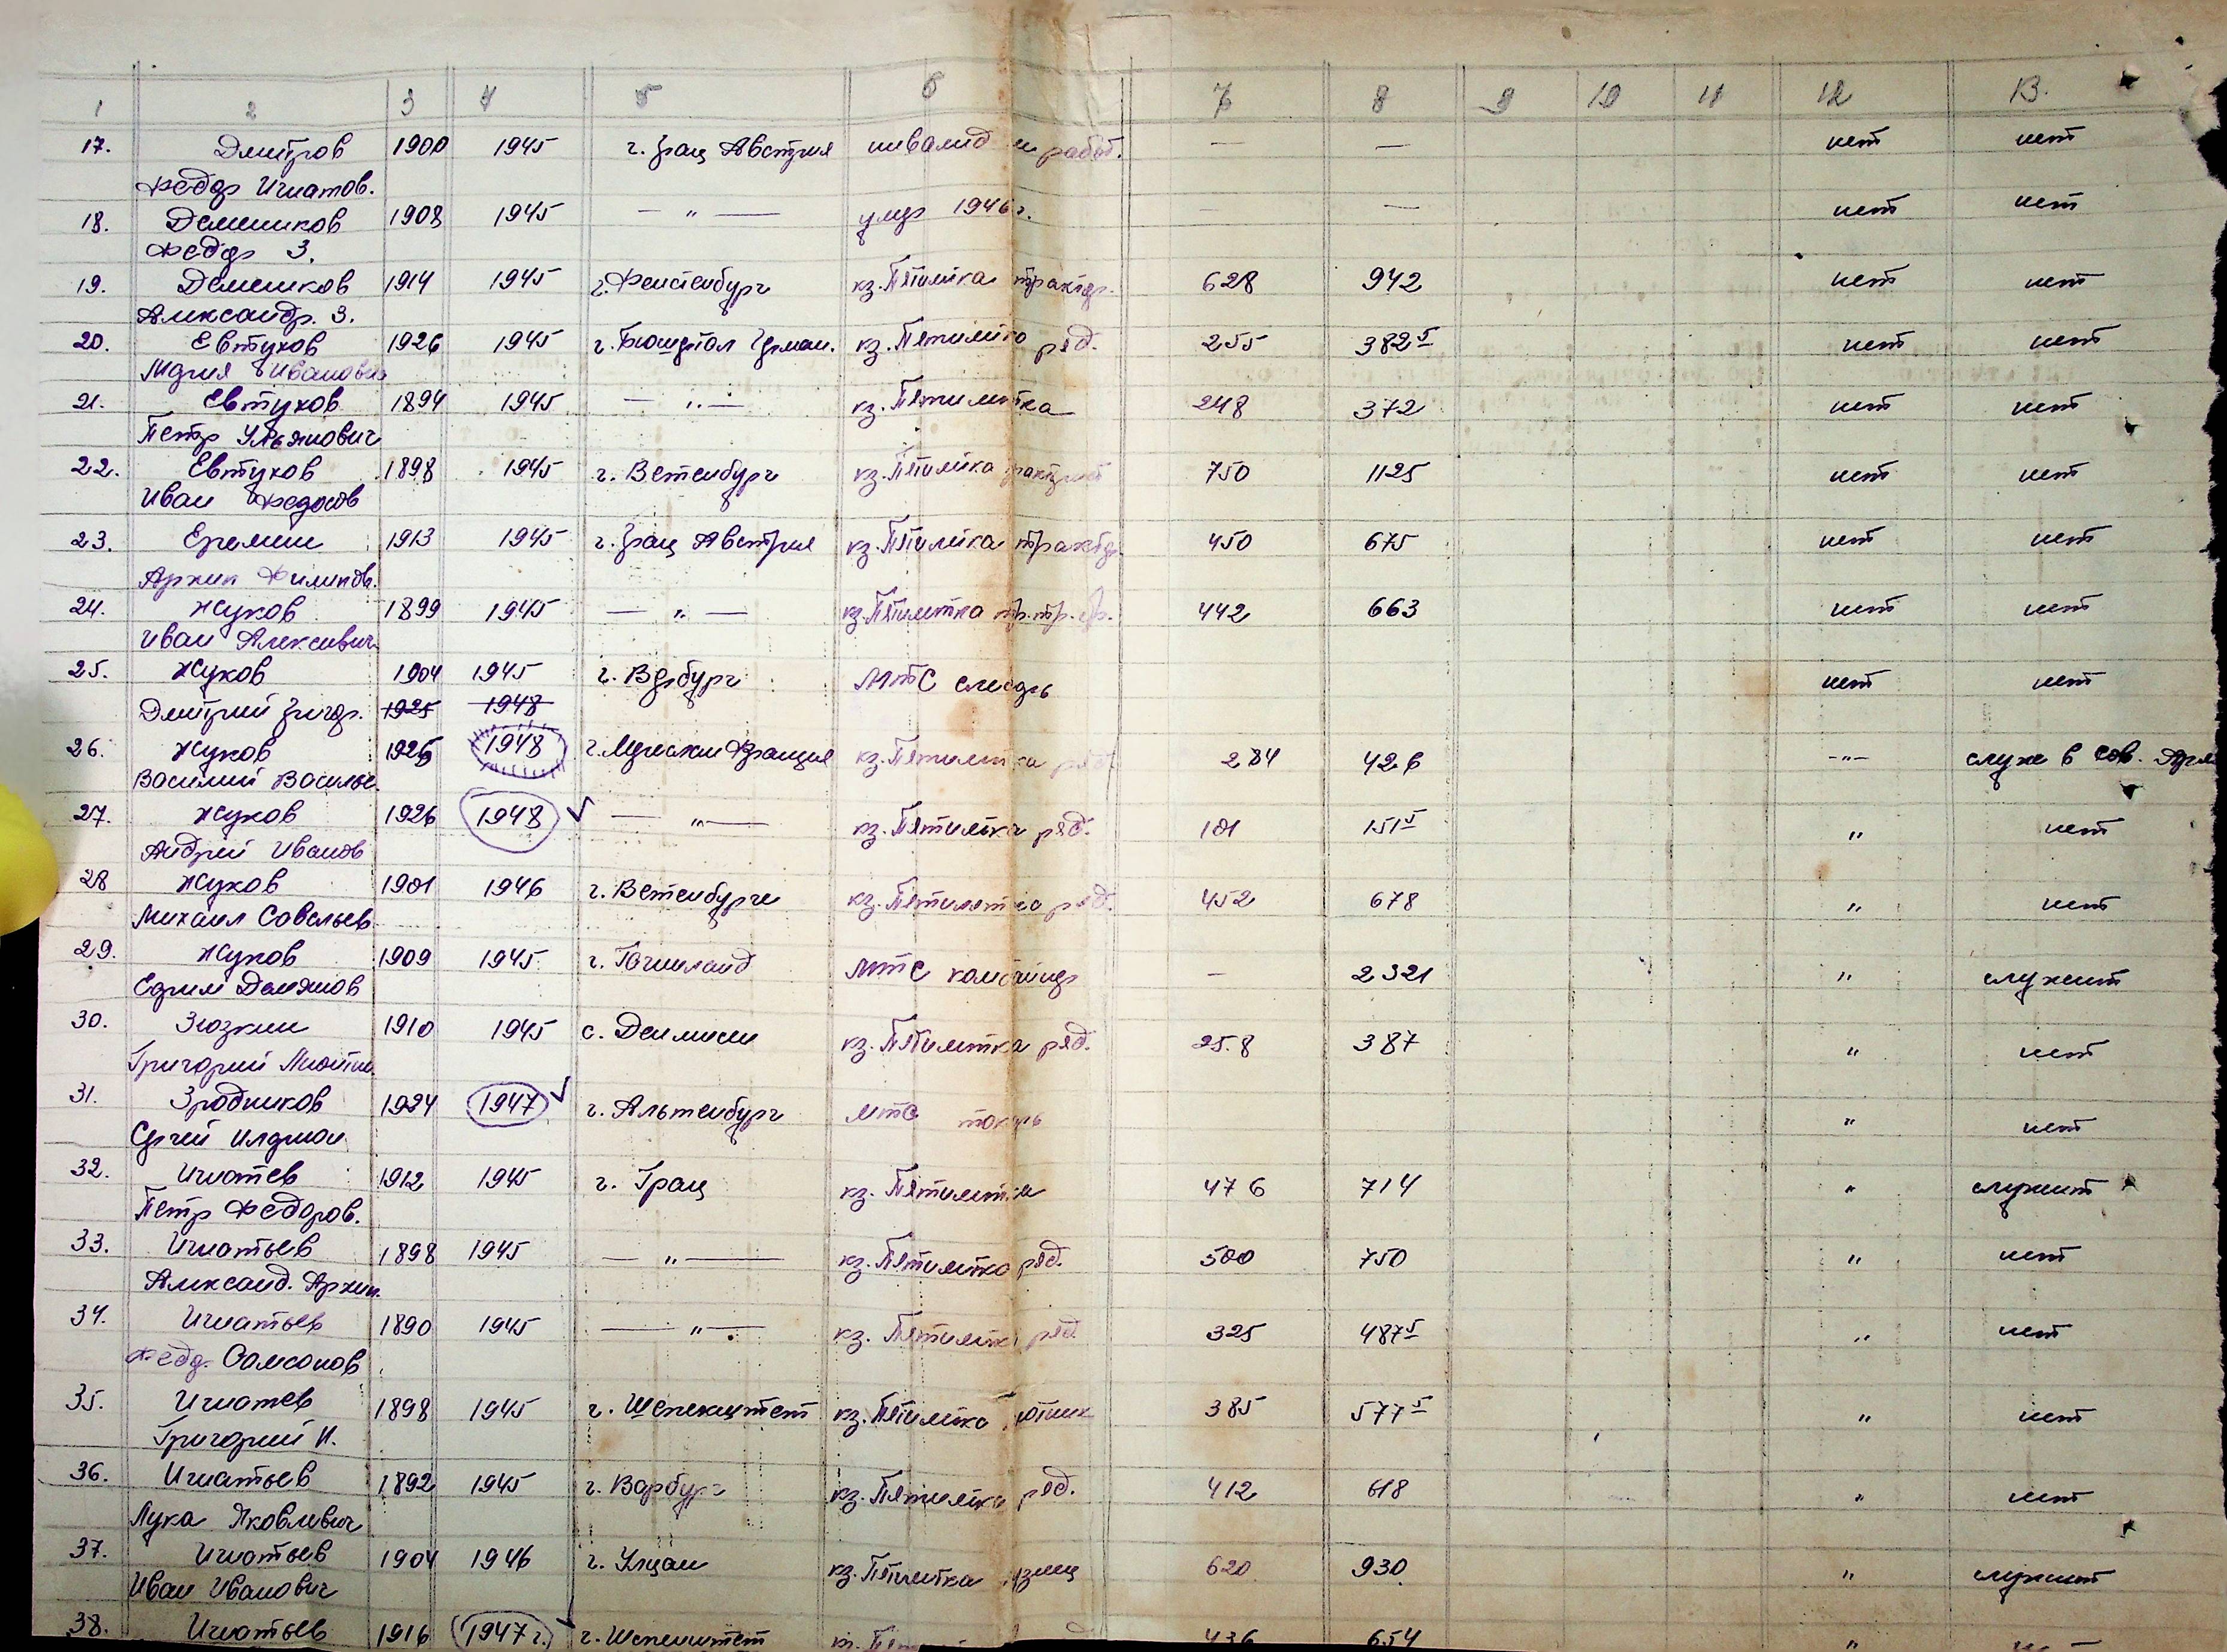 1 2 3 4 5 6 7 8 9 10 11 12 13.
17. Дмитров 1900 1945 г. Грац Австрия инвалид не работ. — — нет нет
Федор Игнатов.
18. Деменков 1908 1945 — " — умер 1946 г. — — нет нет
Федор З.
19. Деменков 1914 1945 г. Фенстенбург кз. Пятилетка трактор. 628 942 нет нет
Александр. З.
20. Евтухов 1926 1945 кз. Пятилетка ряд. 255 382 5 нет нет
Иванович
21. Евтухов 1894 1945 — " — кз. Пятилетка 248 372 нет нет
Петр Ульянович
22. Евтухов 1898 1945 г. Ветенбург кз. Пятилетка 750 1125 нет нет
Иван Федосов
23. Еремин 1913 1945 г. Грац Австрия кз. Пятилетка трактор 450 675 нет нет
Архип Филипов.
24. Жуков 1899 1945 — " — кз. Пятилетка 442 663 нет нет
Иван Алексевич
25. Жуков 1904 1945 г. Вербург МТС слесарь нет нет
Дмитрий Григор. 1925 1948
26. Жуков 1925 1948 Франция кз. Пятилетка ряд 284 426 -"- служ в Сов. Арм
Василий Василье.
27. Жуков 1926 1948 — " — кз. Пятилетка ряд. 101 151 5 " нет
Андрей Иванов
28 Жуков 1901 1946 г. Ветенбурге кз. Пятилетка ряд. 452 678 " нет
Михаил Савельев
29. Жуков 1909 1945 МТС комбайнер — 2321 " служит
Ефим Демянов
30. Зюзкин 1910 1945 с. кз. Пятилетка ряд. 258 387 " нет
Григорий
31. Зродников 1924 1947 г. Альтенбург МТС токарь " нет
Сергей
32. Игнатев 1912 1945 г. Грац кз. Пятилетка 476 714 " служит
Петр Федоров.
33. Игнатьев 1898 1945 — " — кз. Пятилетка ряд. 500 750 " нет
Александ. Архип.
34. Игнатьев 1890 1945 — " — кз. Пятилетка ряд 325 487 5 " нет
Федр. Самсонов
35. Игнатев 1898 1945 г. кз. Пятилетка 385 577 5 " нет
Григорий И.
36. Игнатьев 1892 1945 г. Варбург кз. Пятилетка ряд. 412 618 " нет
Лука Яковлевич
37. Игнатьев 1904 1946 г. кз. Пятилетка кузнец 620 930 " служит
Иван Иванович
38. Игнатьев 1916 1947 г. г. 436 654 "